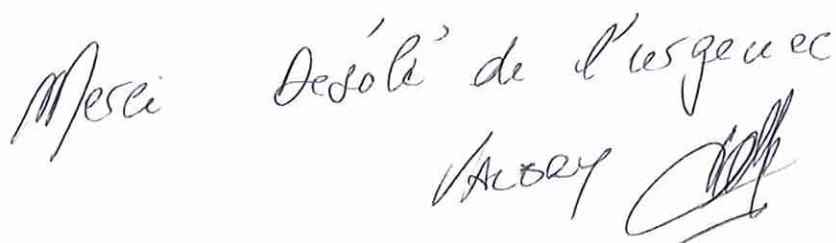 Merci Desolé de l'urgence
VALERY